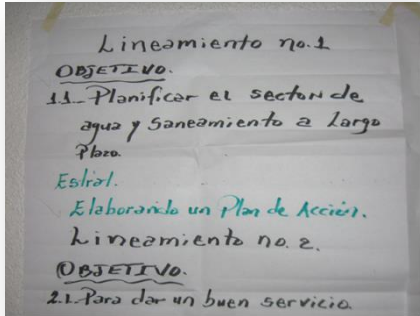 Lineamiento no.1
OBJETIVO.
1.1_Planificar el sector de
agua y Saneamiento a Largo
Plazo.
Estrat.
Elaborando un Plan de Acción.
Lineamiento no.2.
OBJETIVO.
2.1_Para dar un buen servicio.